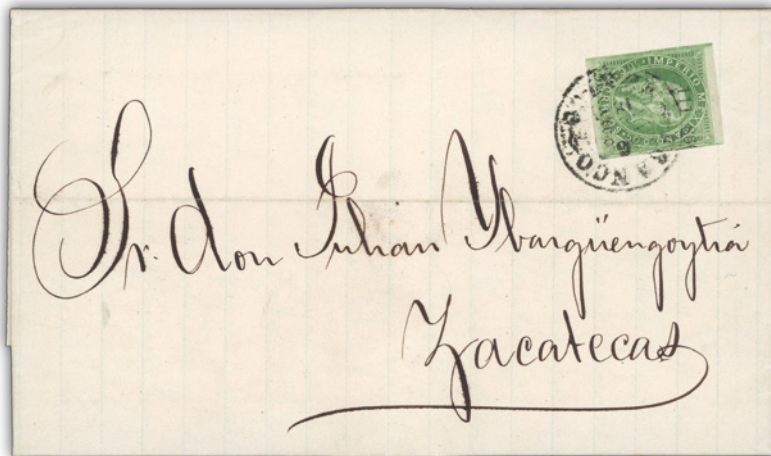 IMPERIO MEXICANO
Sr. don Julian Ybargüengoytia
Zacatecas